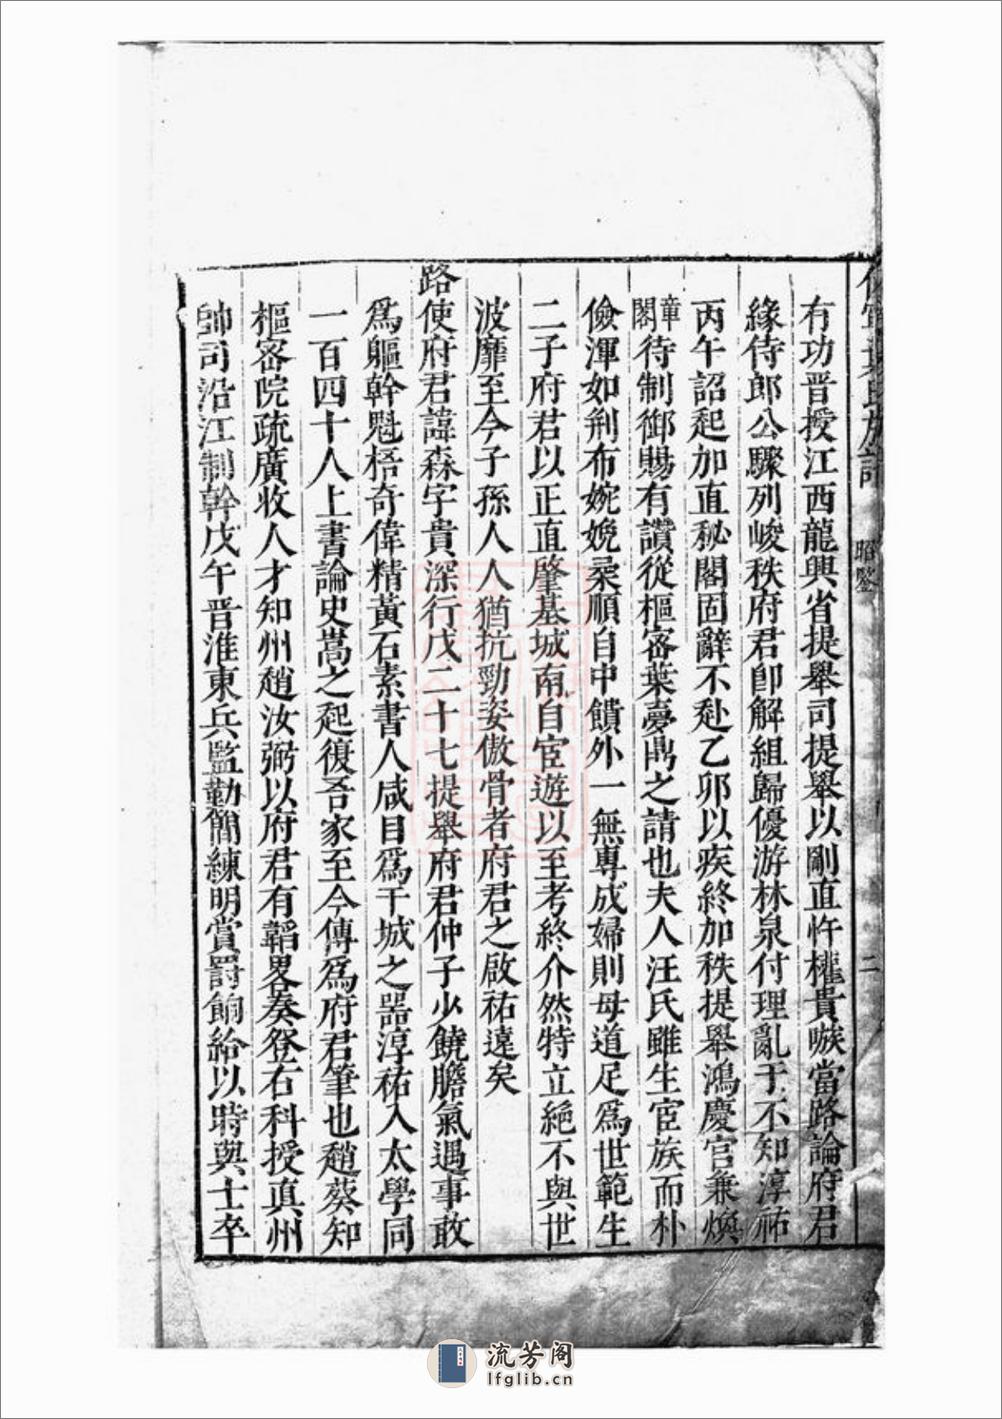 族譜 昭鑒 二
有功晋授江西龍興省提舉司提舉以剛直忤權貴嗾當路論府君
緣侍郎公驟列峻秩府君卽解組歸優游林泉付理亂于不知淳祐
丙午詔起加直秘閣固辭不赴乙卯以疾終加秩提舉鴻慶官兼煥
章閣待制御賜有讚從樞密葉夢鼎之請也夫人汪氏雖生宦族而朴
儉渾如荆布婉娩柔順自中饋外一無專成婦則母道足爲世範生
二子府君以正直肇基城南自宦遊以至考終介然特立絕不與世
波靡至今子孫人人猶抗勁姿傲骨者府君之啟祐遠矣
路使府君諱森字貴深行戊二十七提舉府君仲子少饒膽氣遇事敢
爲軀幹魁梧奇偉精黃石素書人咸目爲干城之器淳祐入太學同
一百四十人上書論史嵩之起復吾家至今傳爲府君筆也趙葵知
樞密院疏廣收人才知州趙汝弼以府君有韜畧奏登右科授真州
帥司沿江制幹戊午晋淮東兵監勤簡練明賞罸餉給以時與士卒
流芳阁
lfglib.cn